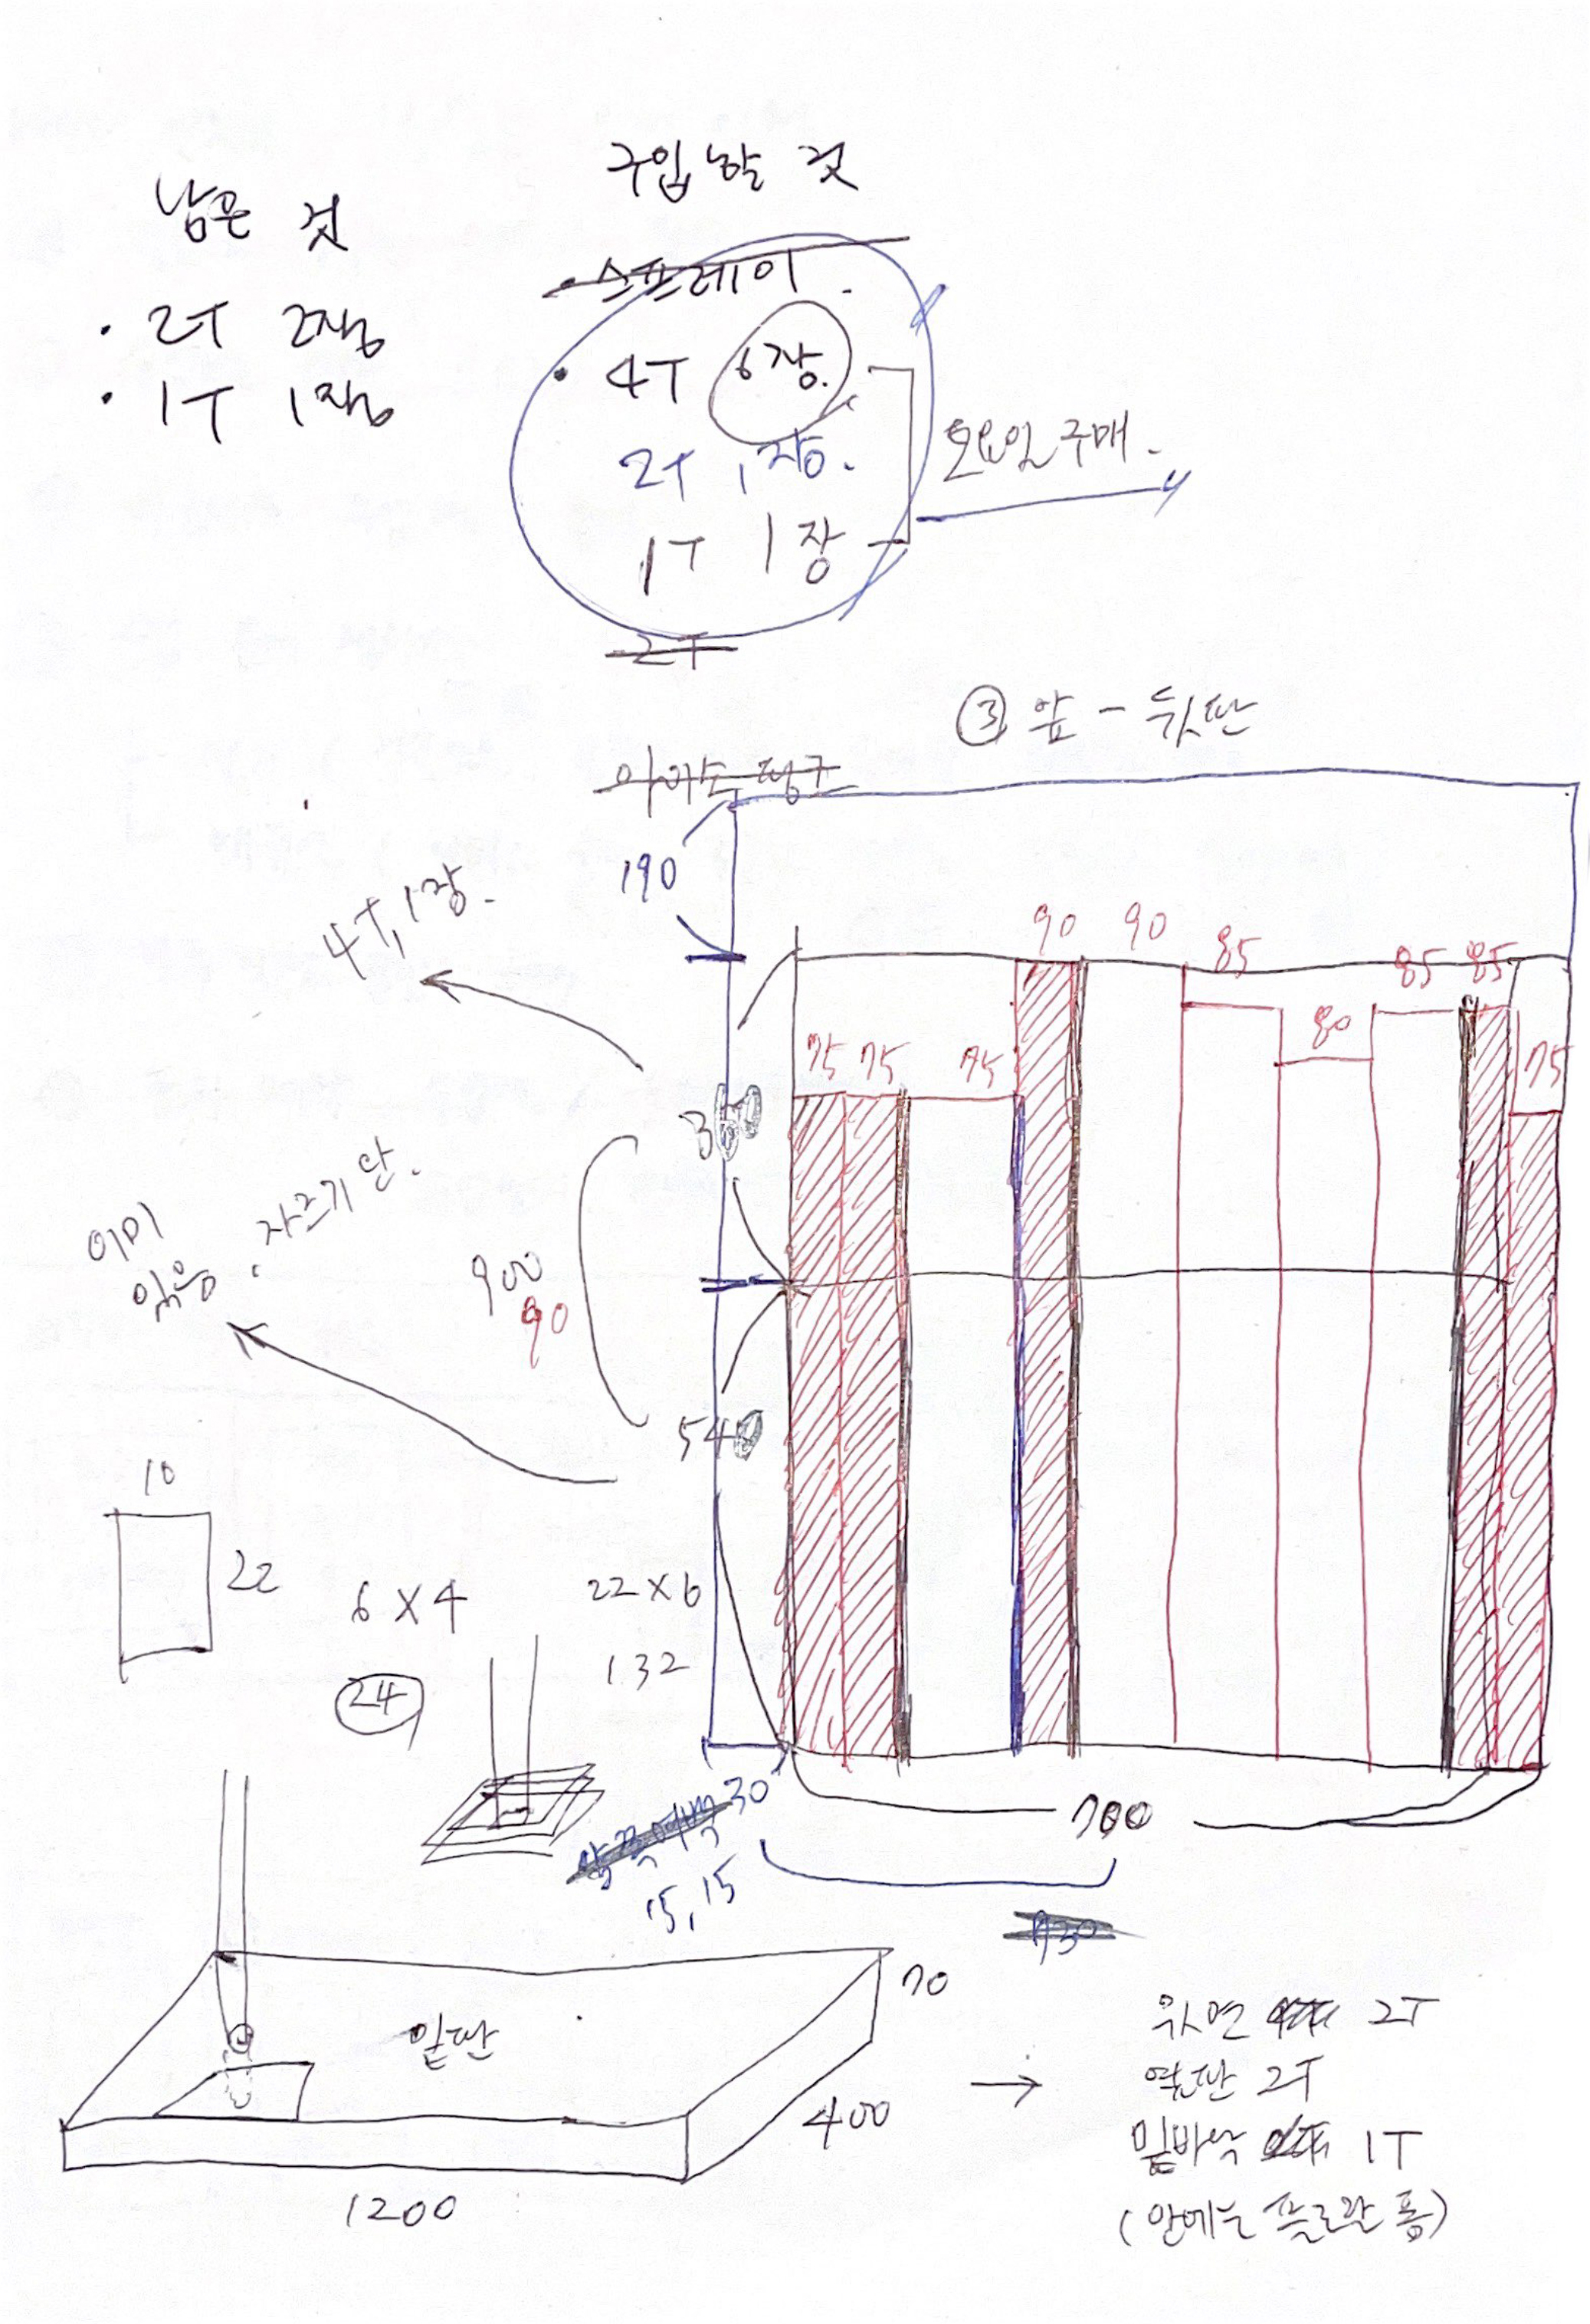 남은 것
• 2T 2장
• 1T 1장
구입할 것
• 스프레이.
• 4T 6장.
2T 1장.
1T 1장
토요일 구매.
2T
③ 앞 - 뒷판
190
4T, 1장.
90 90 85 80 85 85
75 75 75 75
360
이미 있음. 자르기만.
900
90
540
10
22
6 X 4
24
22 X 6
132
30
15, 15
700
730
밑판
70
400
1200
→
윗면 2T
옆판 2T
밑바닥 1T
(안에는 플로랄 폼)